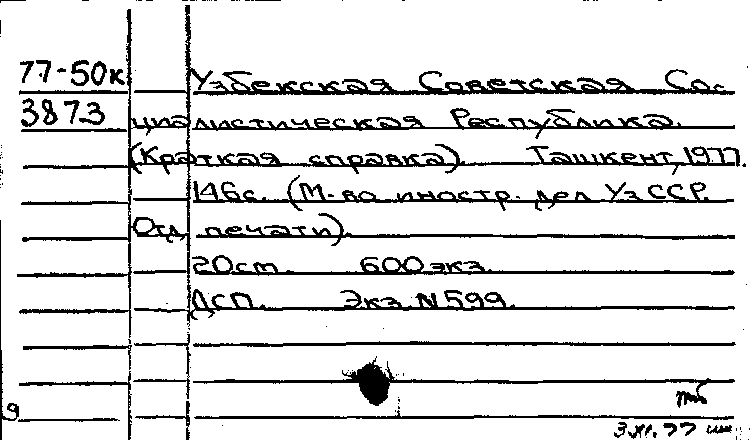 77-50к Узбекская Советская Со-
3873 циалистическая Республика.
(Краткая справка). Ташкент, 1977.
146с. (М-во иностр. дел УзССР.
Отд. печати).
20см. 600 экз.
ДСП. Экз. N 599.
тб
9
3.XI.77